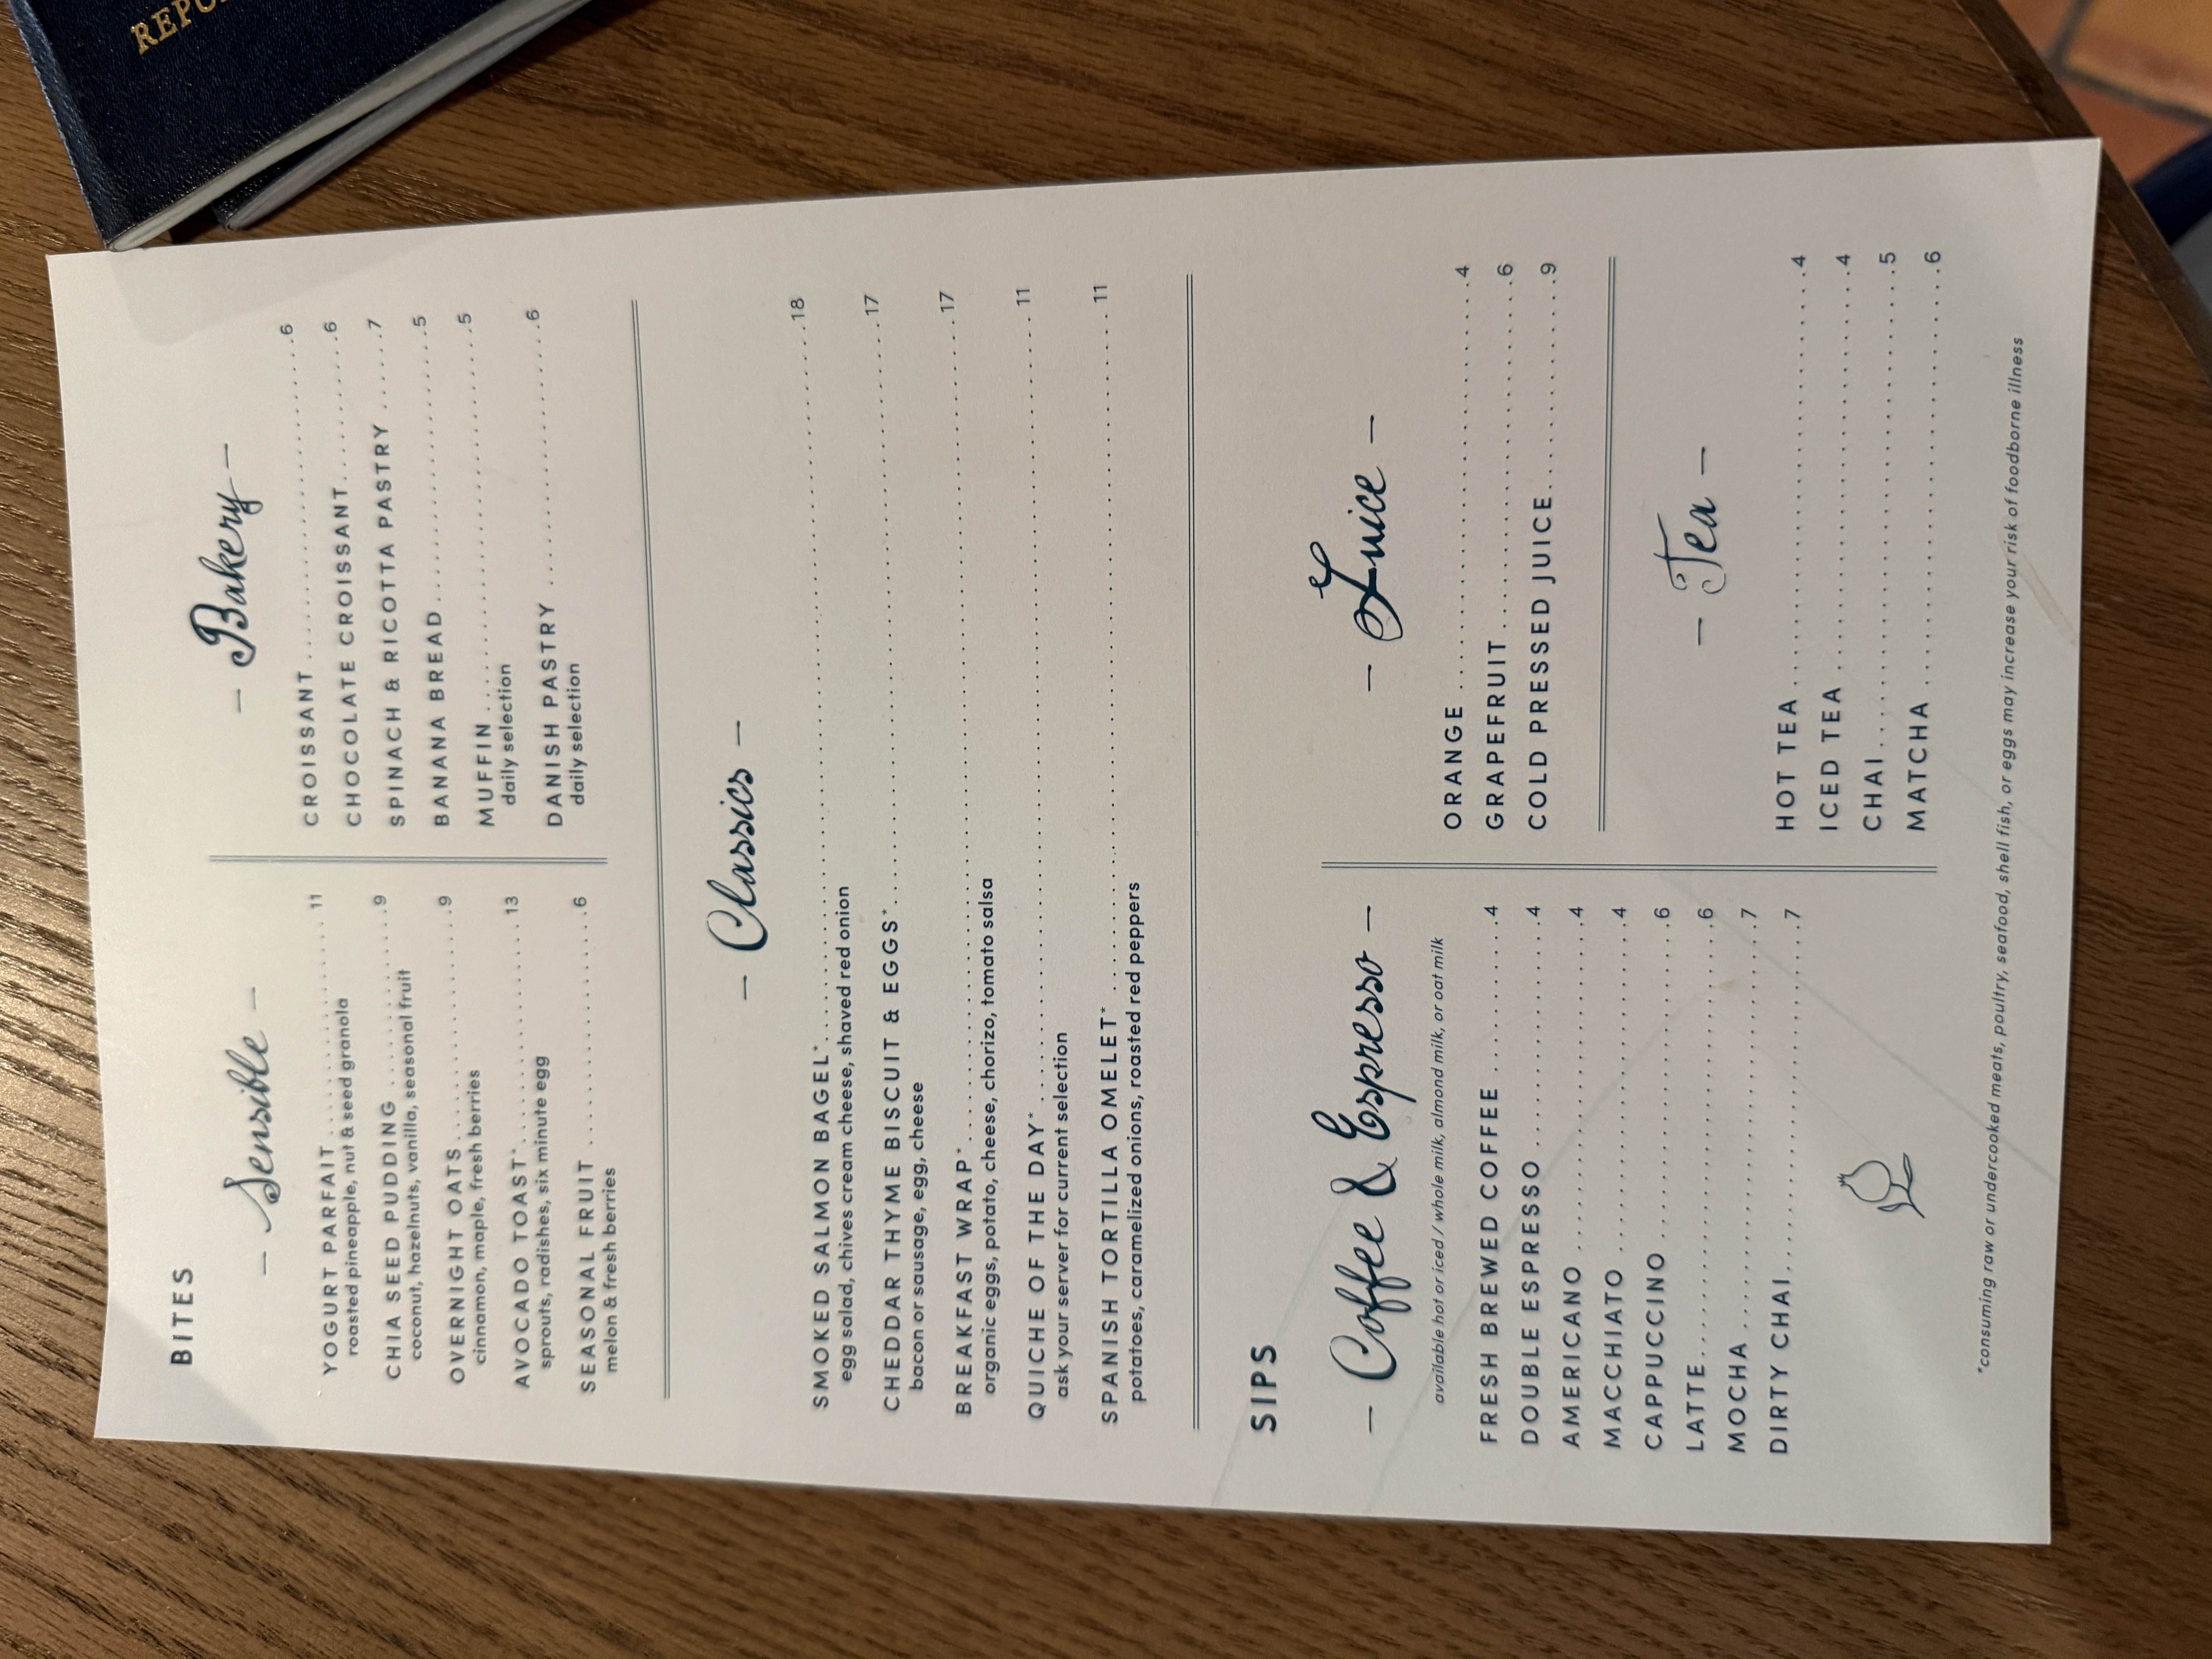 REPU
BITES
– Sensible –
YOGURT PARFAIT . . . . . . . . . . . . . . . . 11
roasted pineapple, nut & seed granola
CHIA SEED PUDDING . . . . . . . . . . . . 9
coconut, hazelnuts, vanilla, seasonal fruit
OVERNIGHT OATS . . . . . . . . . . . . . . . 9
cinnamon, maple, fresh berries
AVOCADO TOAST* . . . . . . . . . . . . . . . 13
sprouts, radishes, six minute egg
SEASONAL FRUIT . . . . . . . . . . . . . . . . 6
melon & fresh berries
– Bakery –
CROISSANT . . . . . . . . . . . . . . . . . . . . . 6
CHOCOLATE CROISSANT . . . . . . . . . . 6
SPINACH & RICOTTA PASTRY . . . . . . 7
BANANA BREAD . . . . . . . . . . . . . . . . . 5
MUFFIN . . . . . . . . . . . . . . . . . . . . . . . . 5
daily selection
DANISH PASTRY . . . . . . . . . . . . . . . . . 6
daily selection
– Classics –
SMOKED SALMON BAGEL* . . . . . . . . . . . . . . . . . . . . 18
egg salad, chives cream cheese, shaved red onion
CHEDDAR THYME BISCUIT & EGGS* . . . . . . . . . . . . . . . . . . . . 17
bacon or sausage, egg, cheese
BREAKFAST WRAP* . . . . . . . . . . . . . . . . . . . . 17
organic eggs, potato, cheese, chorizo, tomato salsa
QUICHE OF THE DAY* . . . . . . . . . . . . . . . . . . . . 11
ask your server for current selection
SPANISH TORTILLA OMELET* . . . . . . . . . . . . . . . . . . . . 11
potatoes, caramelized onions, roasted red peppers
SIPS
– Coffee & Espresso –
available hot or iced / whole milk, almond milk, or oat milk
FRESH BREWED COFFEE . . . . . . . . . . 4
DOUBLE ESPRESSO . . . . . . . . . . . . . . 4
AMERICANO . . . . . . . . . . . . . . . . . . . . 4
MACCHIATO . . . . . . . . . . . . . . . . . . . . 4
CAPPUCCINO . . . . . . . . . . . . . . . . . . . 6
LATTE . . . . . . . . . . . . . . . . . . . . . . . . . 6
MOCHA . . . . . . . . . . . . . . . . . . . . . . . . 7
DIRTY CHAI . . . . . . . . . . . . . . . . . . . . . 7
– Juice –
ORANGE . . . . . . . . . . . . . . . . . . . . . . . 4
GRAPEFRUIT . . . . . . . . . . . . . . . . . . . . 6
COLD PRESSED JUICE . . . . . . . . . . . . 9
– Tea –
HOT TEA . . . . . . . . . . . . . . . . . . . . . . . 4
ICED TEA . . . . . . . . . . . . . . . . . . . . . . . 4
CHAI . . . . . . . . . . . . . . . . . . . . . . . . . . . 5
MATCHA . . . . . . . . . . . . . . . . . . . . . . . . 6
*consuming raw or undercooked meats, poultry, seafood, shell fish, or eggs may increase your risk of foodborne illness